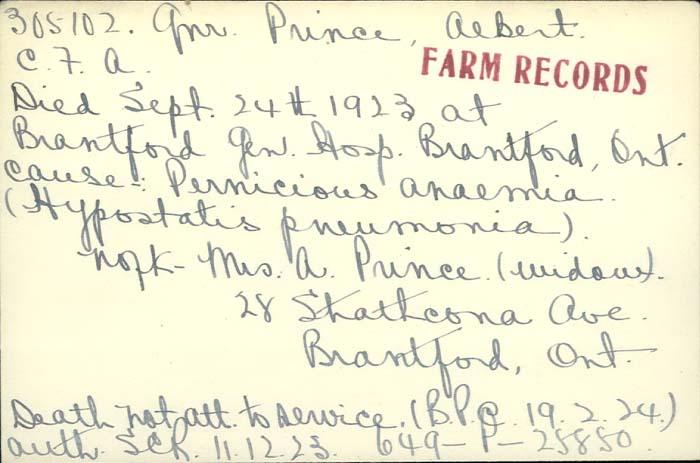 305102. Gnr. Prince, Albert.
C. F. A.
FARM RECORDS
Died Sept. 24th 1923 at
Brantford Gen. Hosp. Brantford, Ont.
cause-: Pernicious anaemia.
(Hypostatis pneumonia).
nofk- Mrs. A. Prince (widow).
28 Strathcona Ave.
Brantford, Ont.
Death not att. to service. (B.P.C. 19.2.24.)
auth. SCR. 11.12.23. 649-P-25850.